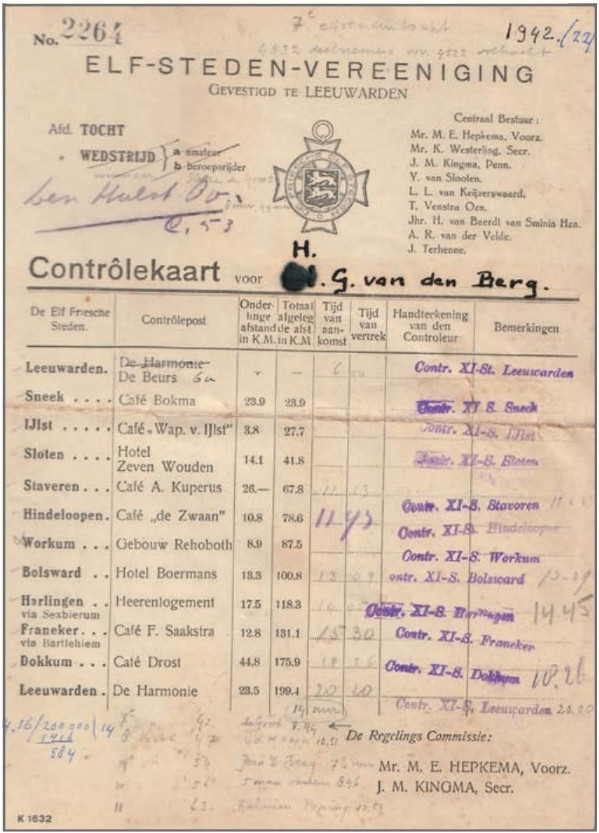 No. 2264
7e elfstedentocht
1942./22
4832 deelnemers
ELF-STEDEN-VEREENIGING
GEVESTIGD TE LEEUWARDEN
Afd. TOCHT
" WEDSTRIJD } a amateur
b beroepsrijder
Centraal Bestuur:
Mr. M. E. Hepkema, Voorz.
Mr. K. Westerling, Secr.
J. M. Kingma, Penn.
Y. van Slooten.
L. L. van Keijzerswaard.
T. Venstra Ozn.
Jhr. H. van Baerdt van Sminia Hzn.
A. R. van der Velde.
J. Terhenne.
H.
Contrôlekaart voor G. van den Berg.
De Elf Friesche Steden. Contrôlepost. Onderlinge afstand in K.M. Totaal afgelegde afst in K.M. Tijd van aankomst Tijd van vertrek Handteekening van den Controleur Bemerkingen
Leeuwarden. De Harmonie De Beurs - — 6 Contr. XI-St. Leeuwarden
Sneek . . . Café Bokma 23.9 23.9 Contr. XI-S. Sneek
IJlst . . . . . Café „Wap. v. IJlst" 3.8 27.7 Contr. XI-S. IJlst
Sloten . . . Hotel Zeven Wouden 14.1 41.8 Contr. XI-S. Sloten
Staveren . . . Café A. Kuperus 26.— 67.8 11 13 Contr. XI-S. Stavoren
Hindeloopen. Café „de Zwaan" 10.8 78.6 11 43 Contr. XI-S. Hindeloopen
Workum . . . Gebouw Rehoboth 8.9 87.5 Contr. XI-S. Workum
Bolsward . . Hotel Boermans 13.3 100.8 13 09 ontr. XI-S. Bolsward 13-09
Harlingen . . via Sexbierum Heerenlogement 17.5 118.3 14 45 Contr. XI-S. Harlingen 14.45
Franeker. . . via Bartlehiem Café F. Saakstra 12.8 131.1 15 30 Contr. XI-S. Franeker
Dokkum . . Café Drost 44.8 175.9 18 26 Contr. XI-S. Dokkum 18.26
Leeuwarden . De Harmonie 23.5 199.4 20 20 Contr. XI-S. Leeuwarden 20.20
De Regelings Commissie:
Mr. M. E. HEPKEMA, Voorz.
J. M. KINGMA, Secr.
K 1632